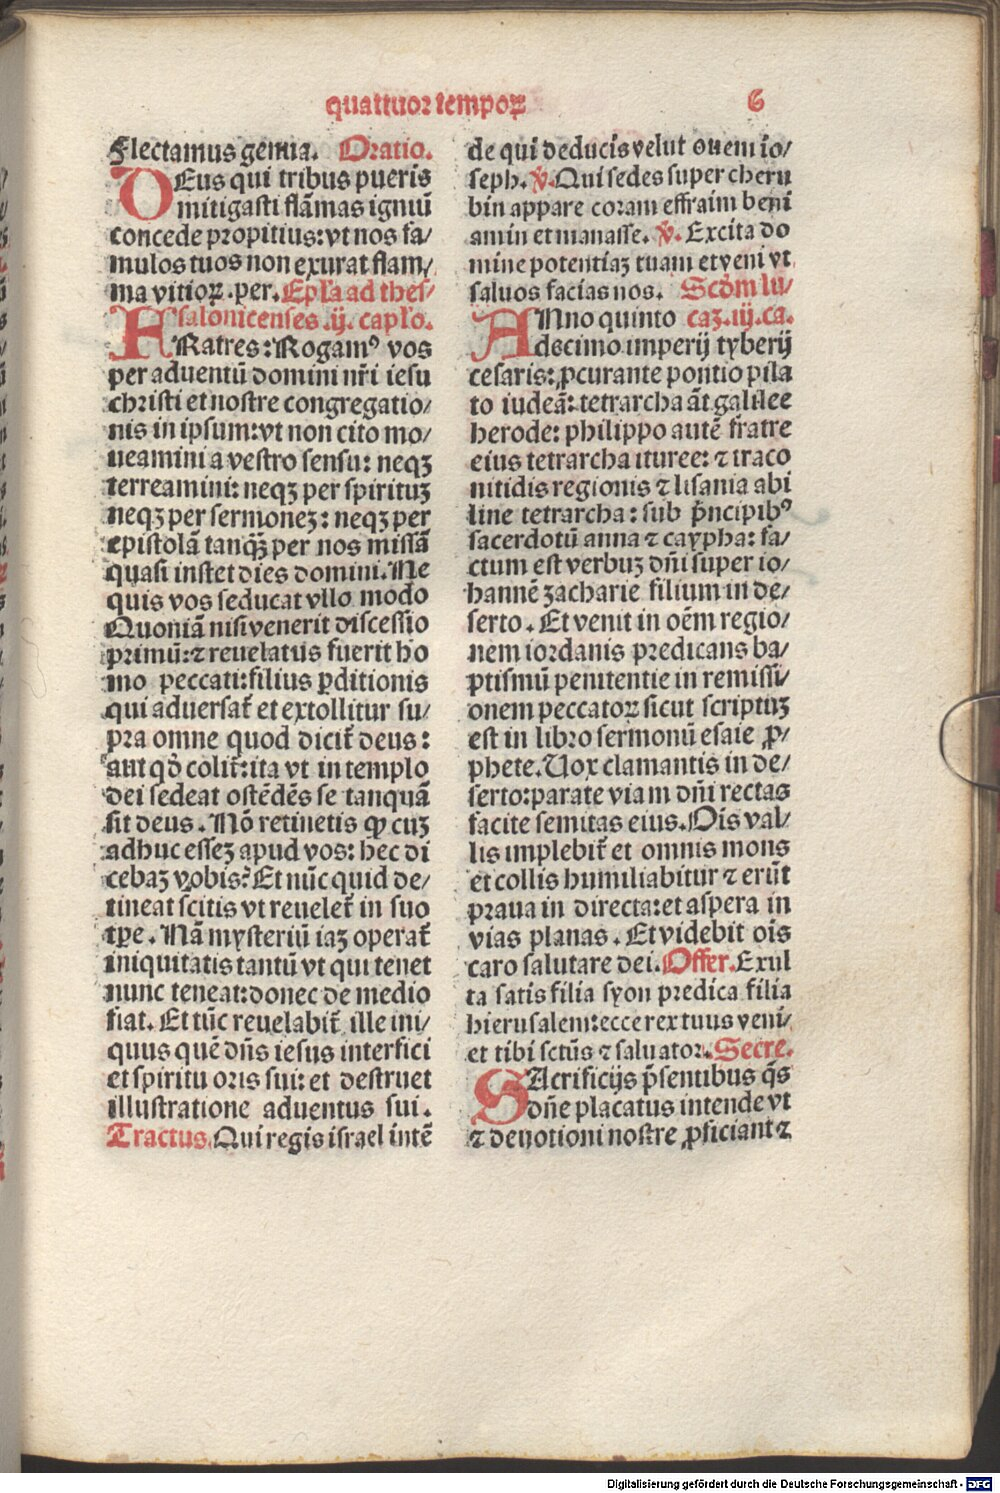 quattuor tempoꝝ 6
Flectamus genua. Oratio.
DEus qui tribus pueris
mitigasti flãmas igniũ
concede propitius: vt nos fa/
mulos tuos non exurat flam/
ma vitioꝝ. per. Ep̃la ad thes/
salonicenses .ij. cap̃lo.
FRatres: Rogamꝰ vos
per aduentũ domini nr̃i iesu
christi et nostre congregatio/
nis in ipsum: vt non cito mo/
ueamini a vestro sensu: neqꝫ
terreamini: neqꝫ per spirituꝫ
neqꝫ per sermoneꝫ: neqꝫ per
epistolã tanqꝫ̃ per nos missã
quasi instet dies domini. Ne
quis vos seducat vllo modo
Quoniã nisi venerit discessio
primũ: ⁊ reuelatus fuerit ho
mo peccati: filius ꝑditionis
qui aduersat᷑ et extollitur su/
pra omne quod dicit᷑ deus:
aut qð colit᷑: ita vt in templo
dei sedeat ostẽdẽs se tanquã
sit deus. Nõ retinetis ꝙ cuꝫ
adhuc esseꝫ apud vos: hec di
cebaꝫ vobis? Et nũc quid de/
tineat scitis vt reuelet᷑ in suo
tp̃e. Nã mysteriũ iaꝫ operat᷑
iniquitatis tantũ vt qui tenet
nunc teneat: donec de medio
fiat. Et tũc reuelabit᷑ ille ini/
quus quẽ dñs iesus interfici
et spiritu oris sui: et destruet
illustratione aduentus sui.
Tractus. Qui regis israel intẽ
de qui deducis velut ouem io/
seph. ℣. Qui sedes super cheru
bin appare coram effraim beni
amin et manasse. ℣. Excita do
mine potentiaꝫ tuam et veni vt
saluos facias nos. Scd̃m lu/
ANno quinto caꝫ .iij. ca.
decimo imperij tyberij
cesaris: ꝓcurante pontio pila
to iudeã: tetrarcha aũt galilee
herode: philippo autẽ fratre
eius tetrarcha ituree: ⁊ traco
nitidis regionis ⁊ lisania abi
line tetrarcha: sub p̃ncipibꝰ
sacerdotũ anna ⁊ caypha: fa/
ctum est verbuꝫ dñi super io/
hannẽ zacharie filium in de/
serto. Et venit in oẽm regio/
nem iordanis predicans ba/
ptismũ penitentie in remissi/
onem peccatoꝝ sicut scriptuꝫ
est in libro sermonũ esaie ꝓ/
phete. Uox clamantis in de/
serto: parate viam dñi rectas
facite semitas eius. Oĩs val/
lis implebit᷑ et omnis mons
et collis humiliabitur ⁊ erũt
praua in directa: et aspera in
vias planas. Et videbit oĩs
caro salutare dei. Offer. Exul
ta satis filia syon predica filia
hierusalem: ecce rex tuus veni/
et tibi sctũs ⁊ saluator. Secre.
SAcrificijs p̃sentibus q̃s
dñe placatus intende vt
⁊ deuotioni nostre ꝓficiant ⁊
Digitalisierung gefördert durch die Deutsche Forschungsgemeinschaft - DFG